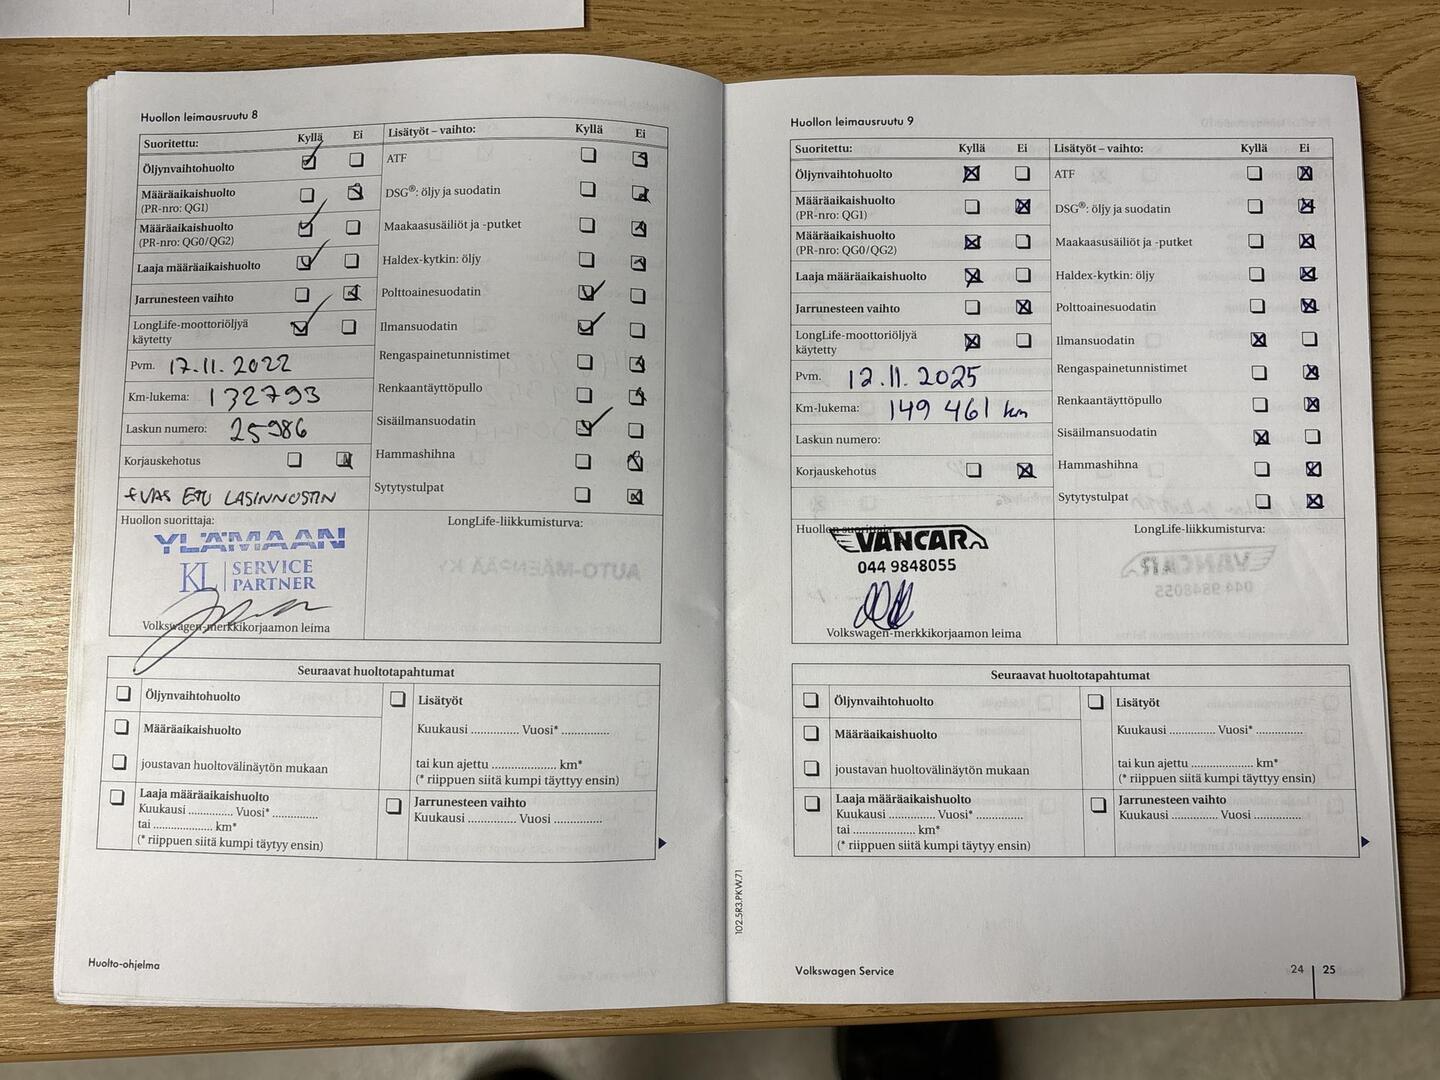 Huollon leimausruutu 8
Suoritettu: Kyllä Ei
Öljynvaihtohuolto
Määräaikaishuolto
(PR-nro: QG1)
Määräaikaishuolto
(PR-nro: QG0/QG2)
Laaja määräaikaishuolto
Jarrunesteen vaihto
LongLife-moottoriöljyä
käytetty
Pvm. 17.11.2022
Km-lukema: 132793
Laskun numero: 25986
Korjauskehotus
ETU LASINNOSTIN
Lisätyöt – vaihto: Kyllä Ei
ATF
DSG®: öljy ja suodatin
Maakaasusäiliöt ja -putket
Haldex-kytkin: öljy
Polttoainesuodatin
Ilmansuodatin
Rengaspainetunnistimet
Renkaantäyttöpullo
Sisäilmansuodatin
Hammashihna
Sytytystulpat
Huollon suorittaja:
YLÄMAAN
KL SERVICE
PARTNER
Volkswagen-merkkikorjaamon leima
LongLife-liikkumisturva:
AUTO-MÄENPÄÄ KY
Seuraavat huoltotapahtumat
Öljynvaihtohuolto
Määräaikaishuolto
joustavan huoltovälinäytön mukaan
Laaja määräaikaishuolto
Kuukausi ............... Vuosi* ...............
tai .................... km*
(* riippuen siitä kumpi täytyy ensin)
Lisätyöt
Kuukausi ............... Vuosi* ...............
tai kun ajettu .................... km*
(* riippuen siitä kumpi täyttyy ensin)
Jarrunesteen vaihto
Kuukausi ............... Vuosi ...............
Huolto-ohjelma
Huollon leimausruutu 9
Suoritettu: Kyllä Ei
Öljynvaihtohuolto
Määräaikaishuolto
(PR-nro: QG1)
Määräaikaishuolto
(PR-nro: QG0/QG2)
Laaja määräaikaishuolto
Jarrunesteen vaihto
LongLife-moottoriöljyä
käytetty
Pvm. 12.11.2025
Km-lukema: 149 461 km
Laskun numero:
Korjauskehotus
Lisätyöt – vaihto: Kyllä Ei
ATF
DSG®: öljy ja suodatin
Maakaasusäiliöt ja -putket
Haldex-kytkin: öljy
Polttoainesuodatin
Ilmansuodatin
Rengaspainetunnistimet
Renkaantäyttöpullo
Sisäilmansuodatin
Hammashihna
Sytytystulpat
Huollon suorittaja:
VANCAR
044 9848055
Volkswagen-merkkikorjaamon leima
LongLife-liikkumisturva:
VANCAR
044 9848055
Seuraavat huoltotapahtumat
Öljynvaihtohuolto
Määräaikaishuolto
joustavan huoltovälinäytön mukaan
Laaja määräaikaishuolto
Kuukausi ............... Vuosi* ...............
tai .................... km*
(* riippuen siitä kumpi täytyy ensin)
Lisätyöt
Kuukausi ............... Vuosi* ...............
tai kun ajettu .................... km*
(* riippuen siitä kumpi täyttyy ensin)
Jarrunesteen vaihto
Kuukausi ............... Vuosi ...............
102.5R3.PKW.71
Volkswagen Service
24 25